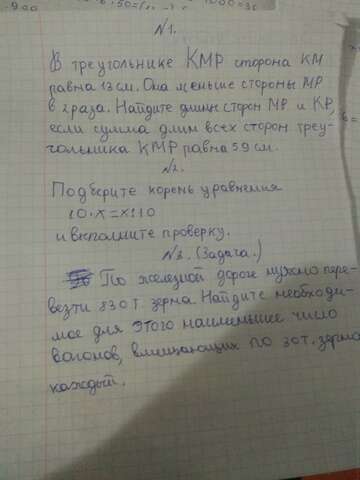 №1.
В треугольнике КМР сторона КМ
равна 13 см. Она меньше стороны МР
в 2 раза. Найдите длины сторон МР и КР,
если сумма длин всех сторон треу-
гольника КМР равна 59 см.
№2.
Подберите корень уравнения
10·х=х110
и выполните проверку.
№3. (Задача.)
По железной дороге нужно пере-
везти 830 т. зерна. Найдите необходи-
мое для этого наименьшее число
вагонов, вмещающих по 30т. зерна
каждый.